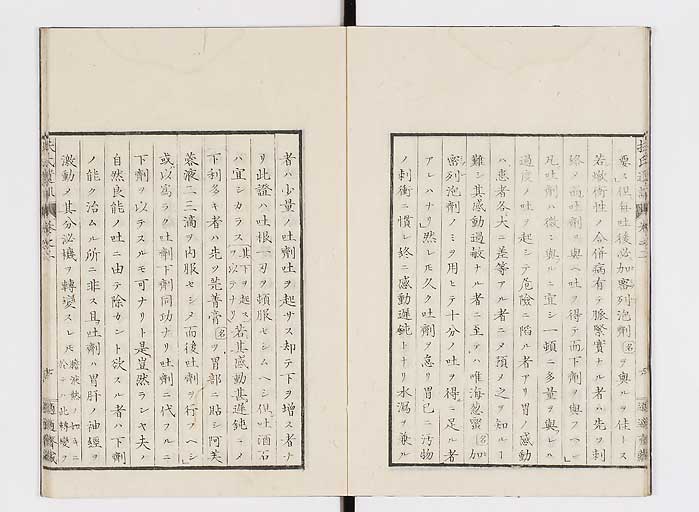 要ス但毎吐後必加密列泡劑名ヲ與ルヲ佳トス
若焮衝性ノ合併病有テ脈緊實ナル者ハ先ツ刺
絡ノ而吐劑ヲ與ヘ吐ヲ得テ而下劑ヲ與フヘシ
凡吐劑ハ微ニ與ルニ宜シ一頓ニ多量ヲ與レハ
過度ノ吐ヲ起シテ危險ニ陷ル者アリ胃ノ感動
ハ患者各大ニ差等アル者ニノ預メ之ヲ知ルー
難シ其感動過敏ナル者ニ至テハ唯海葱蜜名加
密列泡劑ノミヲ用ヒテ十分ノ吐ヲ得ニ足ル者
アレハナリ然レ𪜈久ク吐劑ヲ怠リ胃已ニ汚物
ノ刺衝ニ慣レ終ニ感動遲鈍トナリ水瀉ヲ兼ル
者ハ小量ノ吐劑吐ヲ起サス却テ下ヲ增ス者ナ
リ此證ハ吐根一刃ヲ頓服セシムヘシ但吐酒石
ハ宜シカラス其下ヲ起スヲ以テナリ若其感動甚遲鈍ニノ
下利多キ者ハ先ツ芫菁膏名ヲ胃部ニ貼シ阿芙
蓉液二三滴ヲ内服セシメ而後吐劑ヲ行フヘシ
或以爲ラク吐劑下劑同功ナリ吐劑ニ代フルニ
下劑ヲ以テスルモ可ナリト是豈然ランヤ夫ノ
自然良能ノ吐ニ由テ除カント欲スル者ハ下劑
ノ能ク治ムル所ニ非ス且吐劑ハ胃肝ノ神經ヲ
激動ノ其分泌機ヲ轉變スレ𪜈膽液熱ノ如キニ於テハ此轉變ヲ
適適齋藏